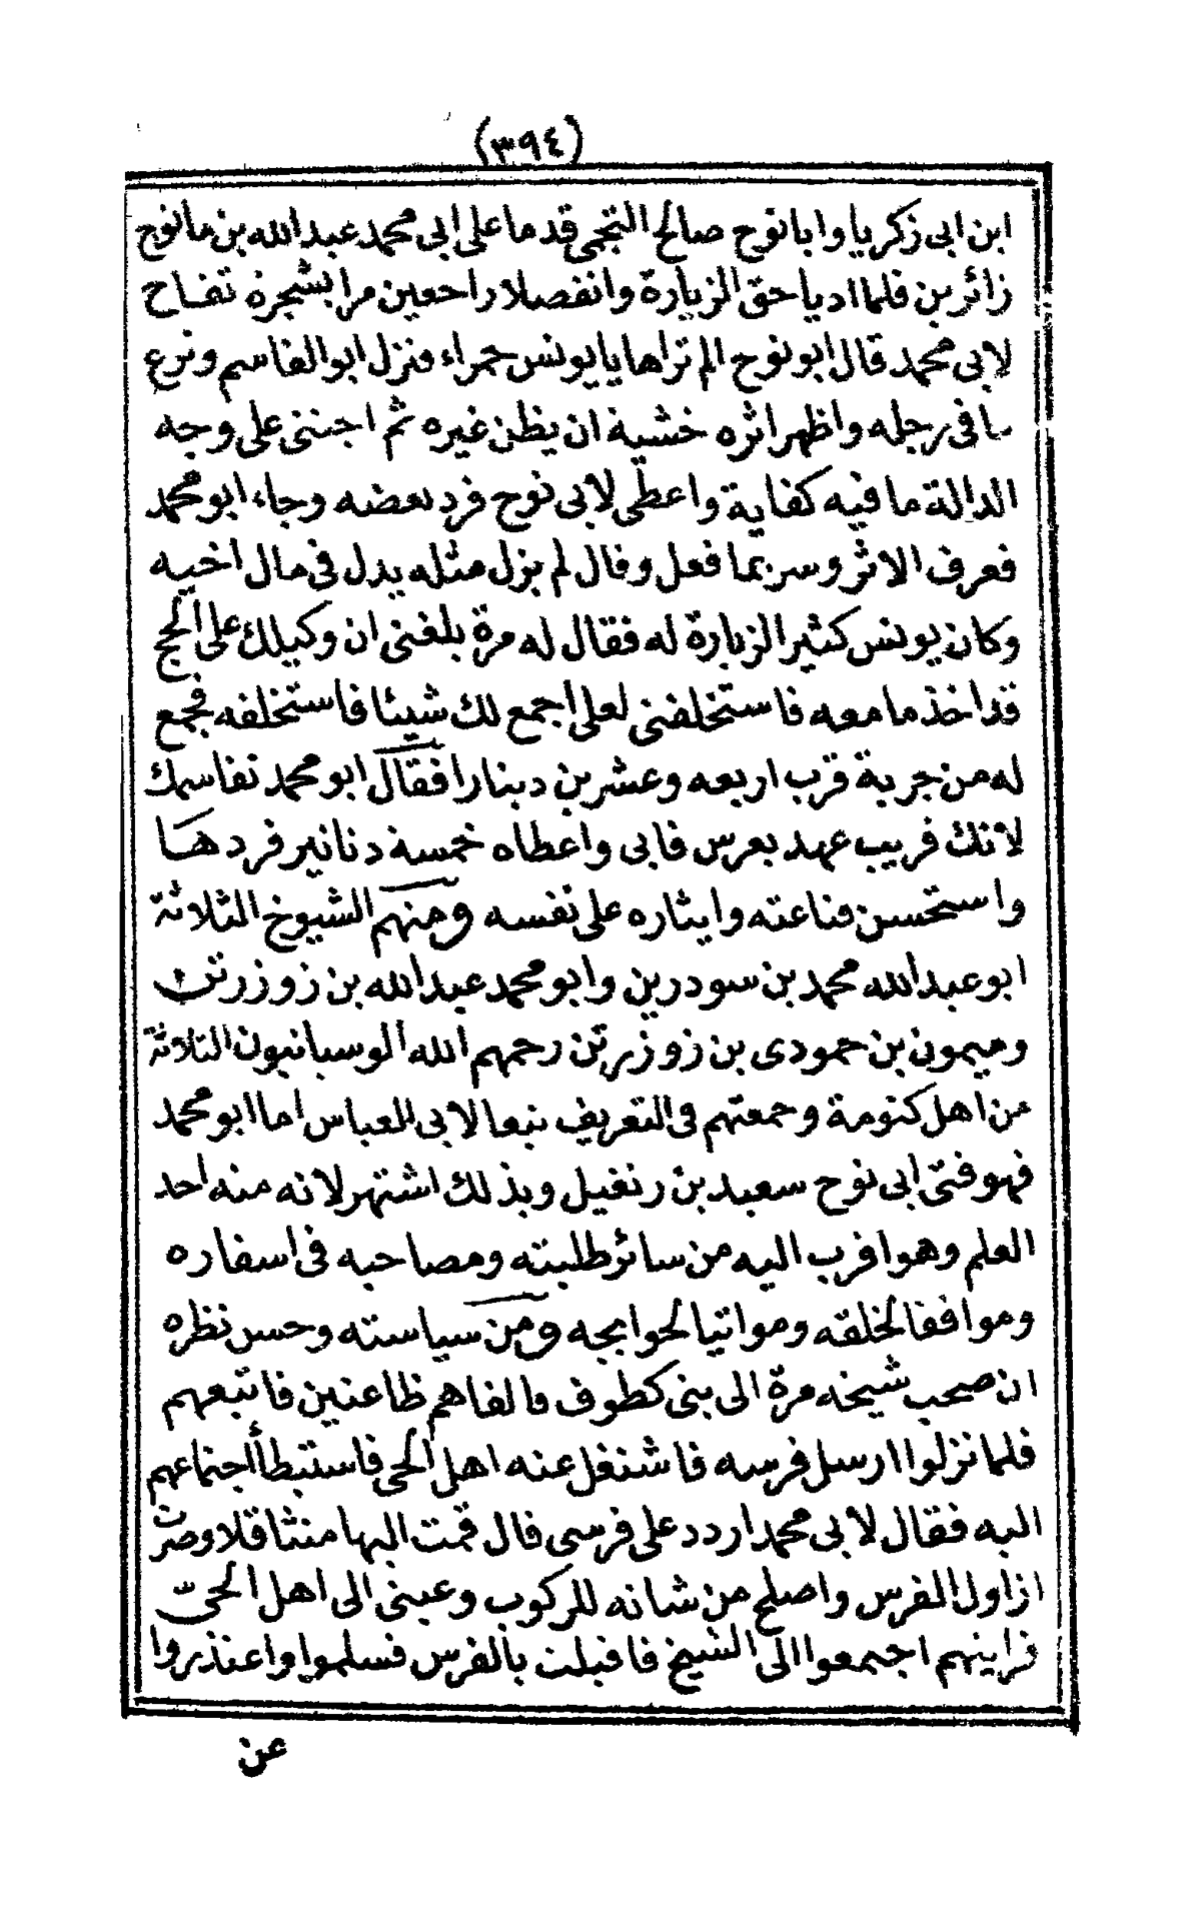 (٣٩٤)
ابن ابى زكرياء وابانوح صالح التجمى قدما على ابى محمد عبد الله بن مانوج
زائرين فلما اديا حق الزيارة وانفصلا راجعين مرا بشجرة تفاح
لابى محمد قال ابونوح الم تراها يا يونس حمراء فنزل ابو القاسم ونزع
ما فى رجله واظهر اثره خشية ان يظن غيره ثم اجتنى على وجه
الدالة ما فيه كفاية واعطى لابى نوح فرد بعضه وجاء ابو محمد
فعرف الاثر وسر بما فعل وقال لم يزل مثله يدل فى مال اخيه
وكان يونس كثير الزيارة له فقال له مرة بلغنى ان وكيلك على الحج
قد اخذ ما معه فاستخلفنى لعلى اجمع لك شيئا فاستخلفه فجمع
له من جربة قرب اربعه وعشرين دينارا فقال ابو محمد نقاسمك
لانك قريب عهد بعرس فابى واعطاه خمسة دنانير فردها
واستحسن قناعته وايثاره على نفسه ومنهم الشيوخ الثلاثة
ابو عبد الله محمد بن سودرين وابو محمد عبد الله بن زوزرتن
وميمون بن حمودى بن زوزرتن رحمهم الله الوسيانيون الثلاثة
من اهل كنومة وجمعتهم فى التعريف تبعا لابى العباس اما ابو محمد
فهو فتى ابى نوح سعيد بن زنغيل وبذلك اشتهر لانه منه اخذ
العلم وهو اقرب اليه من سائر طلبته ومصاحبه فى اسفاره
وموافقا لخلقه ومواتيا لحوايجه ومن سياسته وحسن نظره
ان صحب شيخه مرة الى بنى كطوف فالفاهم ظاعنين فاتبعهم
فلما نزلوا ارسل فرسه فاشتغل عنه اهل الحى فاستبطأ اجتماعهم
اليه فقال لابى محمد اردد على فرسى قال قمت اليها متثاقلا وصرت
ازاول الفرس واصلح من شانه للركوب وعينى الى اهل الحىّ
فرايتهم اجتمعوا الى الشيخ فاقبلت بالفرس فسلموا واعتذروا
عن